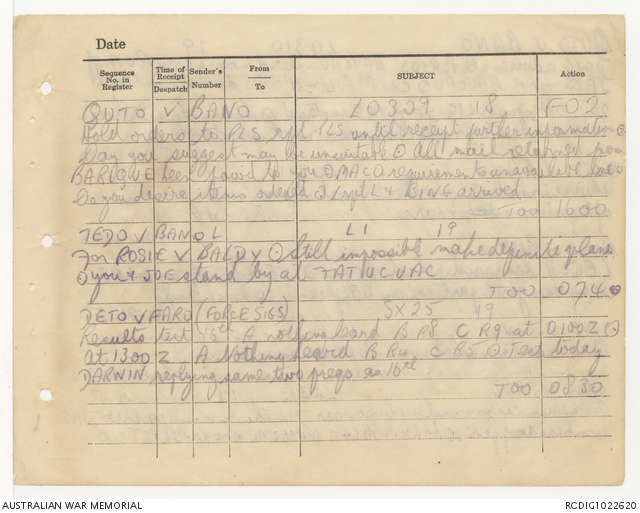 Date
Sequence No. in Register Time of Receipt Despatch Sender's Number From To SUBJECT Action
QUTO V BANO LO309 18 F02
Hold orders to PLS rpt PLS until receipt further information
you suggest may be unsuitable All mail returned from
BARIQUE been to you MACA requirements unavailable
Do you desire items ordered L & BING arrived
TOO 1600
TEDO V BANO L L1 19
For ROSIE V BALDY Still impossible make definite plans
you & JOE stand by at TATUCUAC
TOO 0740
DETO V FARO (FORCE SIGS) SX25 19
Results test 15th A nothing heard B R8 C R9 at 0100Z
At 1300Z A Nothing heard B R4 C R5 Test today
DARWIN replying same two freqs as 16th
TOO 0830
AUSTRALIAN WAR MEMORIAL RCDIG1022620